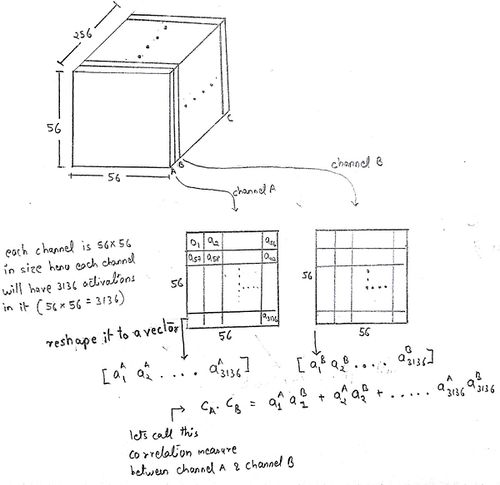 256
56
56
A
B
C
channel B
channel A
each channel is 56x56
in size hence each channel
will have 3136 activations
in it (56 x 56 = 3136)
a₁ a₂ a₅₆
a₅₇ a₅₈
a₃₁₃₆
56
56
56
56
reshape it to a vector
[a₁ᴬ a₂ᴬ .... a₃₁₃₆ᴬ]
[a₁ᴮ a₂ᴮ .... a₃₁₃₆ᴮ]
C_A . C_B = a₁ᴬ a₂ᴮ + a₂ᴬ a₂ᴮ + ..... a₃₁₃₆ᴬ a₃₁₃₆ᴮ
lets call this
correlation measure
between channel A & channel B